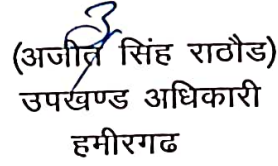 (अजीत सिंह राठौड)
उपखण्ड अधिकारी
हमीरगढ